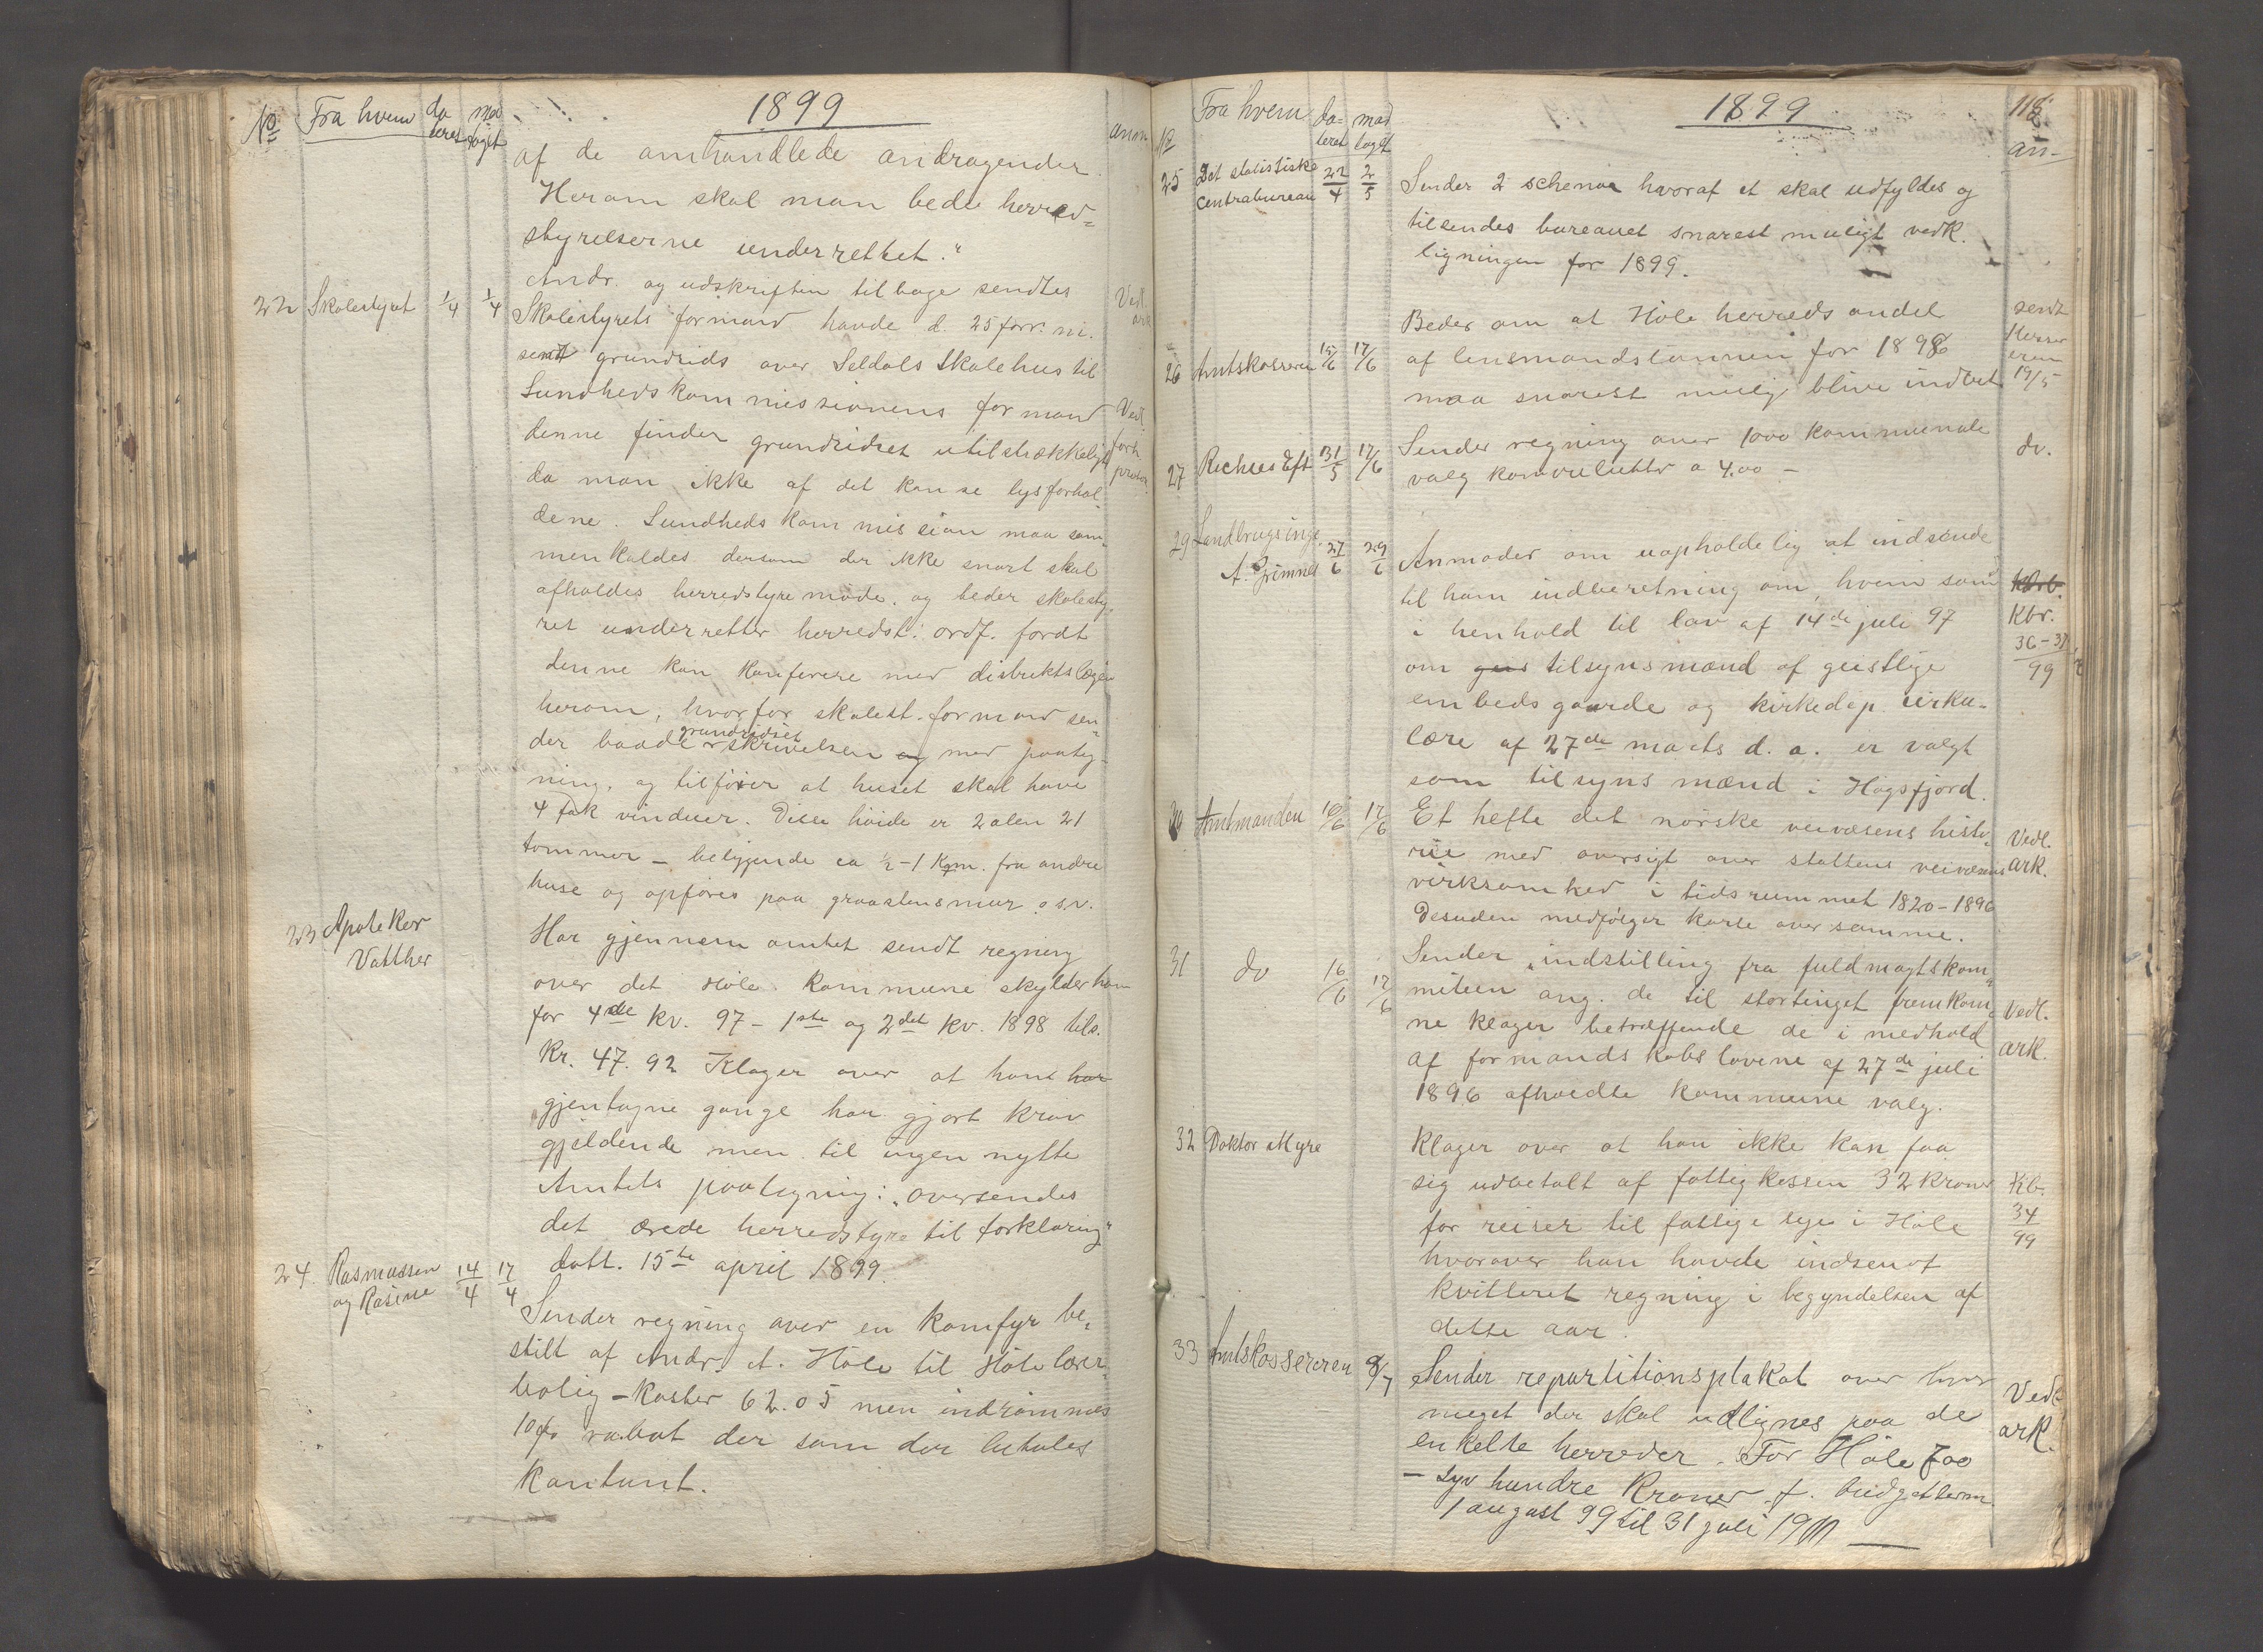 1899
No Fra hvem da teret mod taget anm
af de omhandlede andragender.
Herom skal man bede herreds=
styrelserne underrettet."
Andr. og udskriften tilbage sendtes
22 Skolestyret 1/4 1/4 Skolestyrets formand havde d. 25 forr. m. Vedl. ark
sendt grundrids over Seldals Skolehus til
Sundhedskommissionens formand Vedl.
denne finder grundridset utilstrækkeligt forh
da man ikke af det kan se lysforhol protok.
dene. Sundhedskommission maa sam-
menkaldes dersom der ikke snart skal
afholdes herredstyremøde. og beder skolesty-
ret underretter herredst. ordf. fordt
denne kan konferere med distriktslægen
herom, hvorfor skolest. formand sen-
der baade grundridset skrivelsen og med paateg-
ning, og tilføier at huset skal have
4 fak vinduer. Disse høide er 2 alen 21
tommer – beliggende ca ½-1 Km. fra andre
huse og opføres paa graastensmur o.s.v.
23 Apoteker Vatther
Har gjennem amtet sendt regning
over det Høle Kommune skylder ham
for 4de kv. 97 – 1ste og 2det kv. 1898 tils.
Kr. 47.92 Klager over at hans har
gjentagne gange har gjort krav
gjeldende men til ingen nytte
Amtets paategning: "oversendes
det ærede herredstyre til forklaring"
datt. 15te april 1899.
24. Rasmussen og Rasine 14/4 17/4
Sender regning over en komfyr be-
stilt af Andr. A. Høle til Høle lærer-
bolig – koster 62.05 men indrømmes
10% rabat der som der betales
kontant.
1899
118
No Fra hvem da= teret mod taget an-
25 Det statistiske Centrabureau 22/4 2/5 Sender 2 schemaer hvoraf et skal udfyldes og
tilsendes bureauet snarest muligt vedk.
ligningen for 1899.
Beder om at Høle herreds andel sendt
26 Amtskasseren 15/6 17/6 af lensmandslønnen for 1898 Kasser eren
maa snarest mulig blive indbet. 19/5
27 Richus Eft 31/5 17/6 Sender regning over 1000 kommunale do.
valg konvolutter a 4.00 –
29 Landbrugsing. A. Grimnes 27/6 29/6 Anmoder om uopholdelig at indsende
til ham indberetning om, hvem som
i henhold til lov af 14de juli 97 Kbr.
om geis tilsynsmænd af geistlige 36-37/99
embedsgaarde og kirkedep. cirku-
lære af 27de marts d. a. er valgt
som tilsynsmænd i Høgsfjord.
30 Amtmanden 10/6 17/6 Et hefte det norske veivæsens histo-
rie med oversigt over stattens veivæsens Vedl. ark.
virksomhed i tidsrummet 1820-1896
Desuden medfølger karte over samme.
31 do 16/6 17/6 Sender "indstilling fra fuldmagtskom-
miteen ang. de til stortinget fremkom-
ne klager betræffende de i medhold Vedl.
af formandskabslovene af 27de juli ark.
1896 afholdte kommune valg.
32 Doktor Myre Klager over at han ikke kan faa
sig udbetalt af fattigkassen 32 kroner Kb.
for reiser til fattige syge i Høle 34/99
hvorover han havde indsendt
kvitteret regning i begyndelsen af
dette aar.
33 Amtskassereren 8/7 Sender repartitionsplakat over hvor
meget der skal udlignes paa de Vedl
enkelte herreder. For Høle 700 ark.
– syv hundre Kroner f. budgetterm.
1 august 99 til 31 juli 1900 —